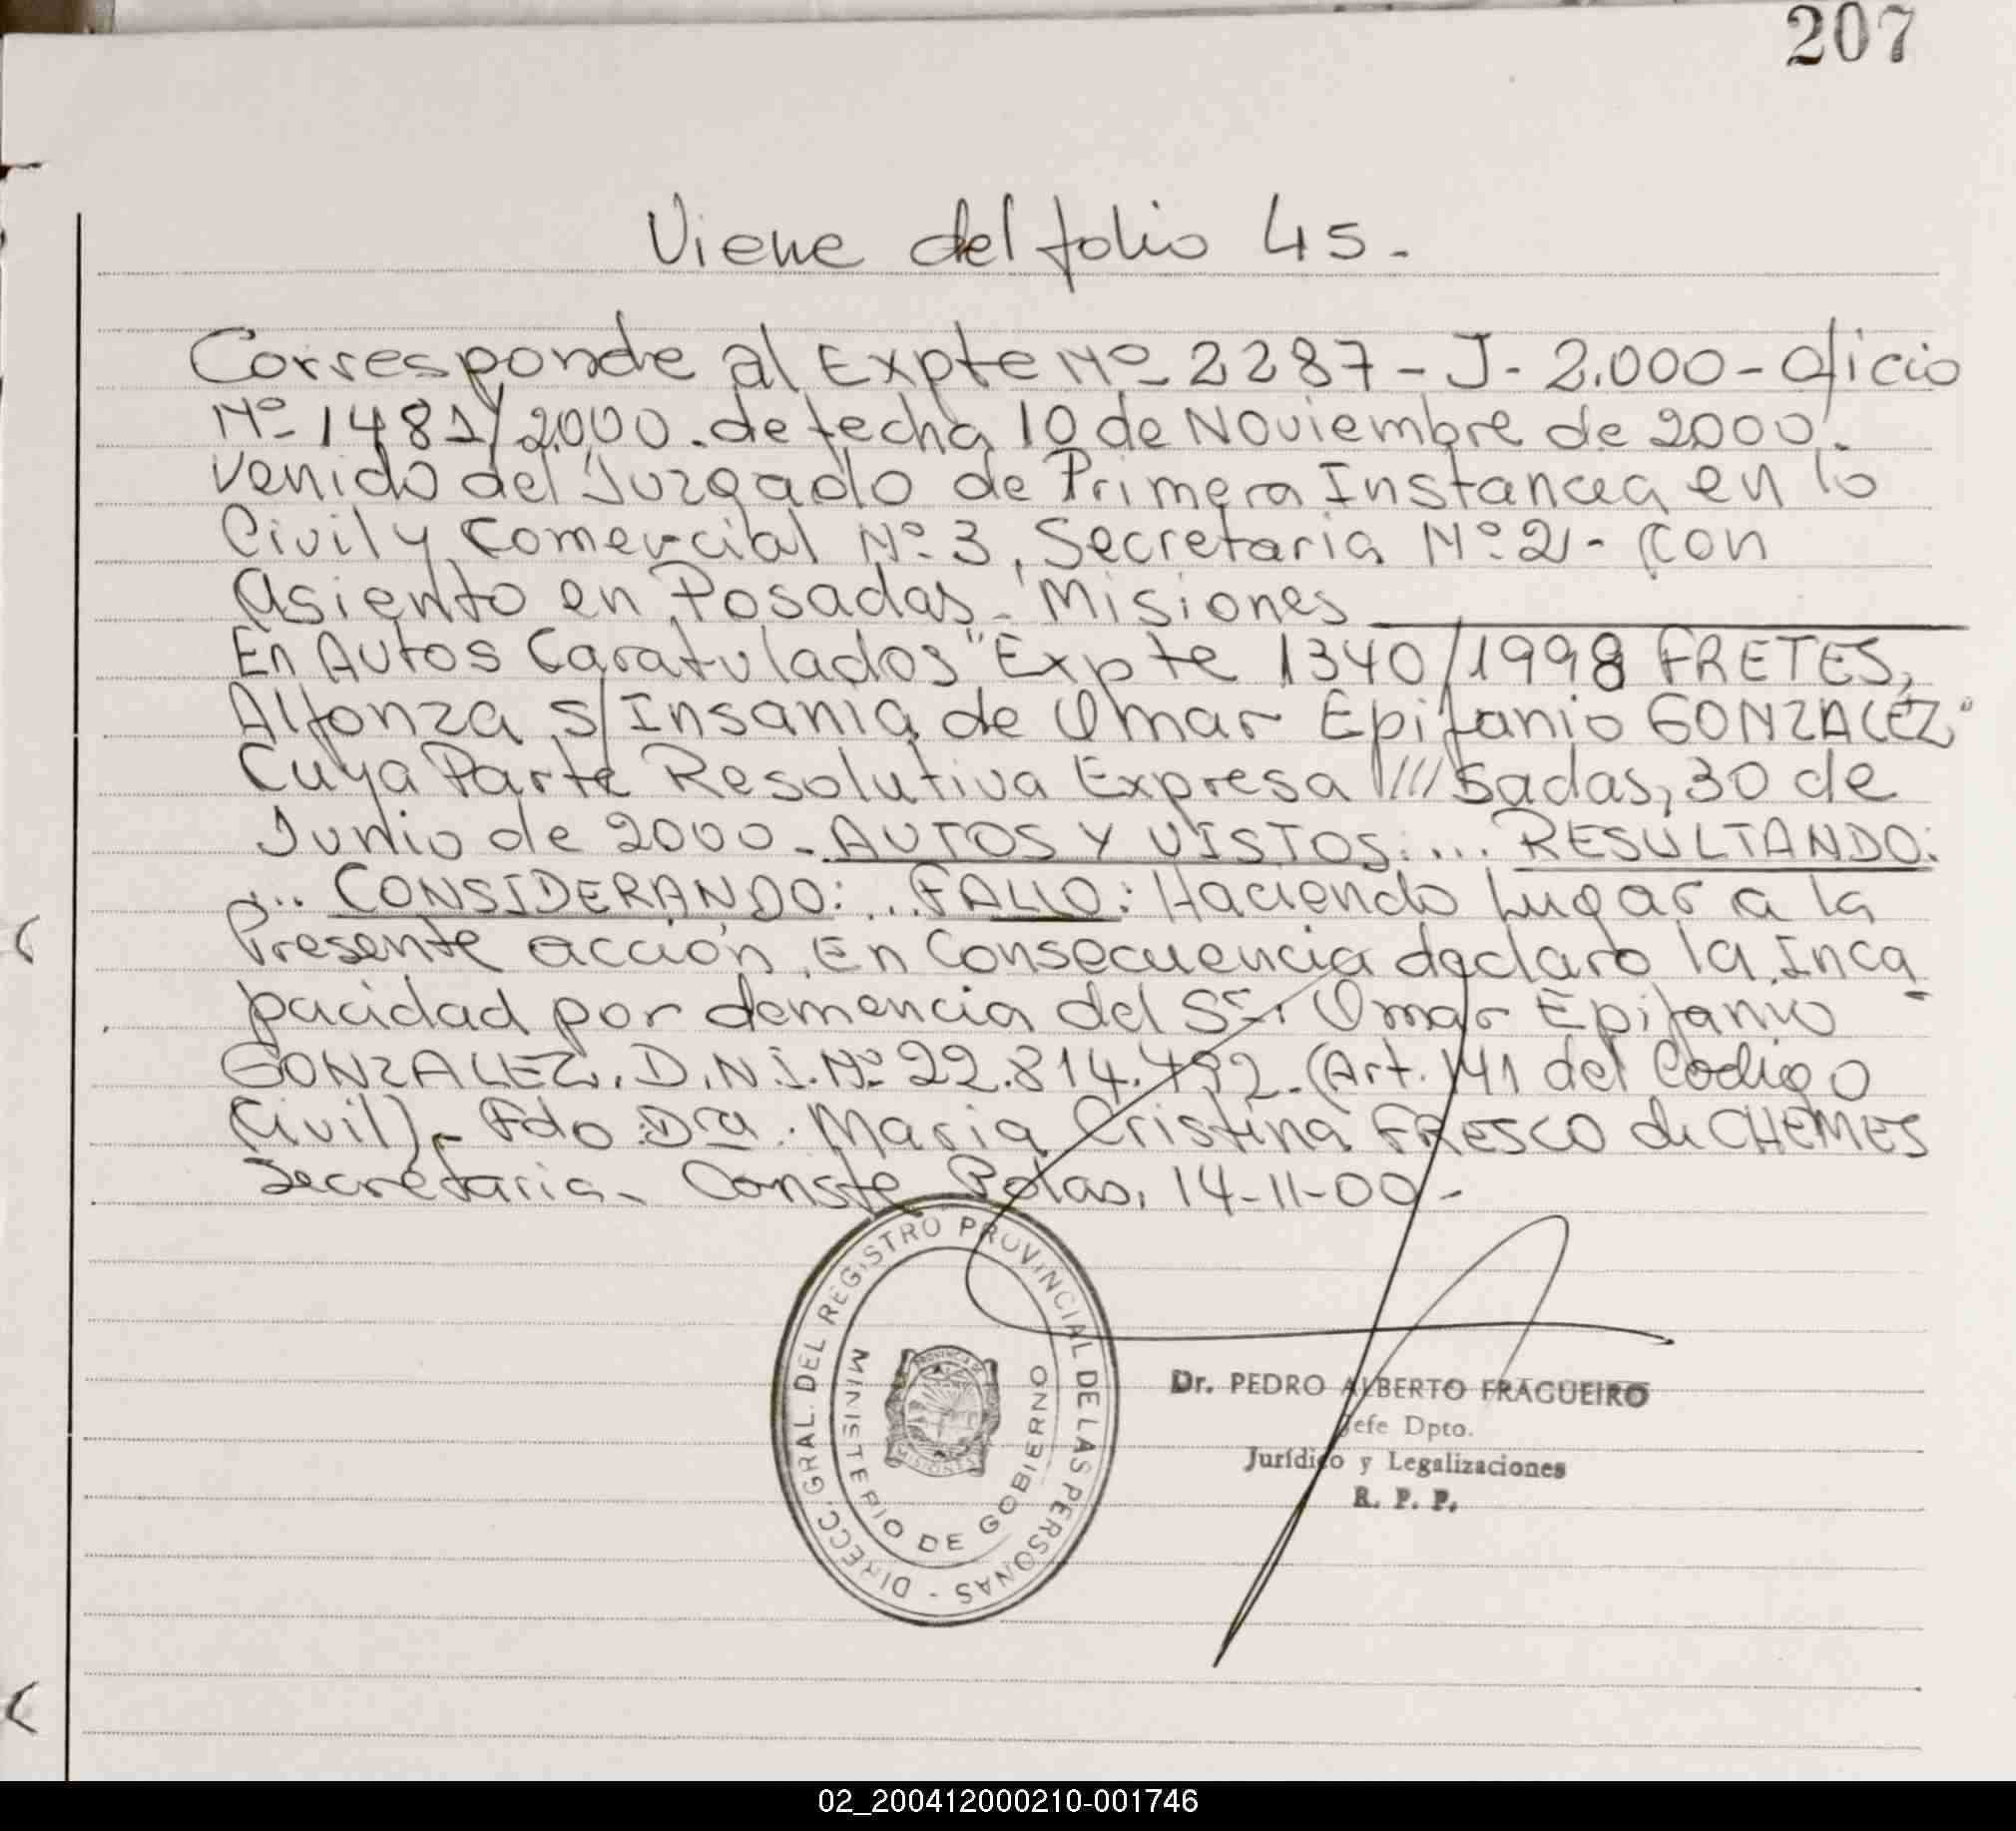 207
Viene del folio 45.-
Corresponde al Expte Nº 2287 - J - 2.000 - Oficio
Nº 1481/2000. de fecha 10 de Noviembre de 2000.
venido del Juzgado de Primera Instancia en lo
Civil y Comercial Nº 3, Secretaria Nº 2 - Con
Asiento en Posadas - Misiones
En Autos Caratulados "Expte 1340/1998 FRETES,
Alfonza s/Insania de Omar Epifanio GONZALEZ"
Cuya Parte Resolutiva Expresa ///sadas, 30 de
Junio de 2000 - AUTOS Y VISTOS: ... RESULTANDO:
... CONSIDERANDO: ... FALLO: Haciendo lugar a la
Presente acción, En Consecuencia declaro la Inca
pacidad por demencia del Sr. Omar Epifanio
GONZALEZ. D.N.I. Nº 22.814.492 - (Art. 141 del Codigo
Civil) - Fdo Dra. Maria Cristina FRESCO de CHEMES
Secretaria - Conste Pdas, 14-11-00 -
DIRECC. GRAL. DEL REGISTRO PROVINCIAL DE LAS PERSONAS -
MINISTERIO DE GOBIERNO
MISIONES
Dr. PEDRO ALBERTO FRAGUEIRO
Jefe Dpto.
Jurídico y Legalizaciones
R. P. P.
02_200412000210-001746